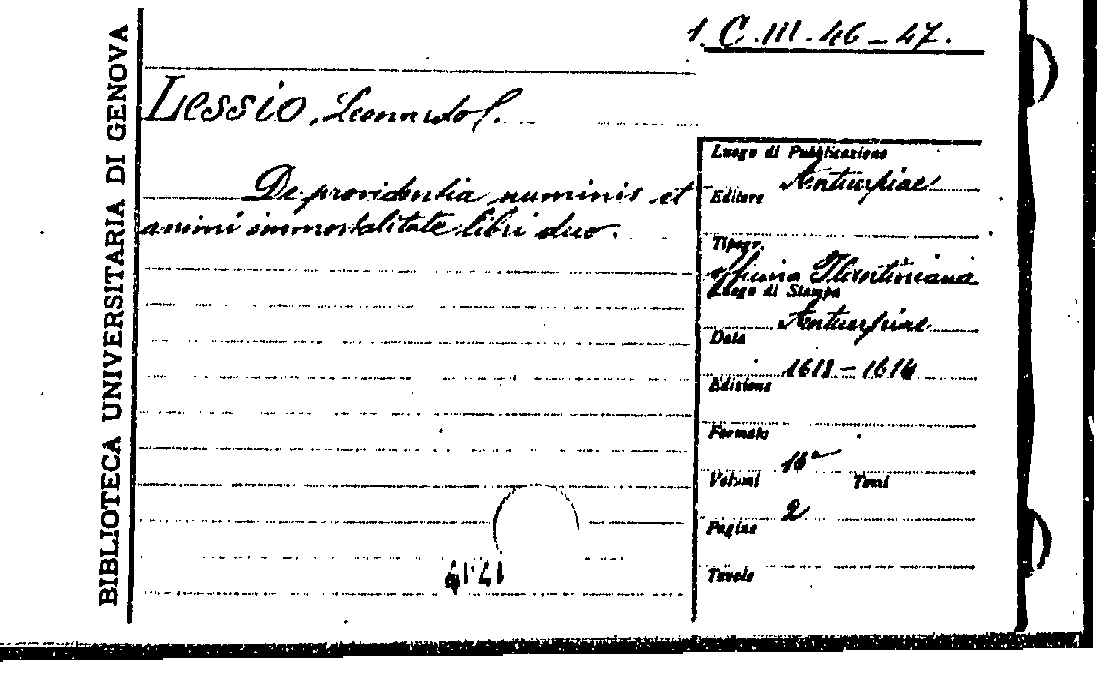 BIBLIOTECA UNIVERSITARIA DI GENOVA
1. C. III. 46 - 47.
Lessio, Leonardo S.
De providentia numinis et
animi immortalitate libri duo.
Luogo di Pubblicazione
Antuerpiae
Editore
Tipogr.
Officina Plantiniana
Luogo di Stampa
Antuerpiae
Data
1613 - 1614
Edizione
Formato
16°
Volumi Tomi
2
Pagine
Tavole